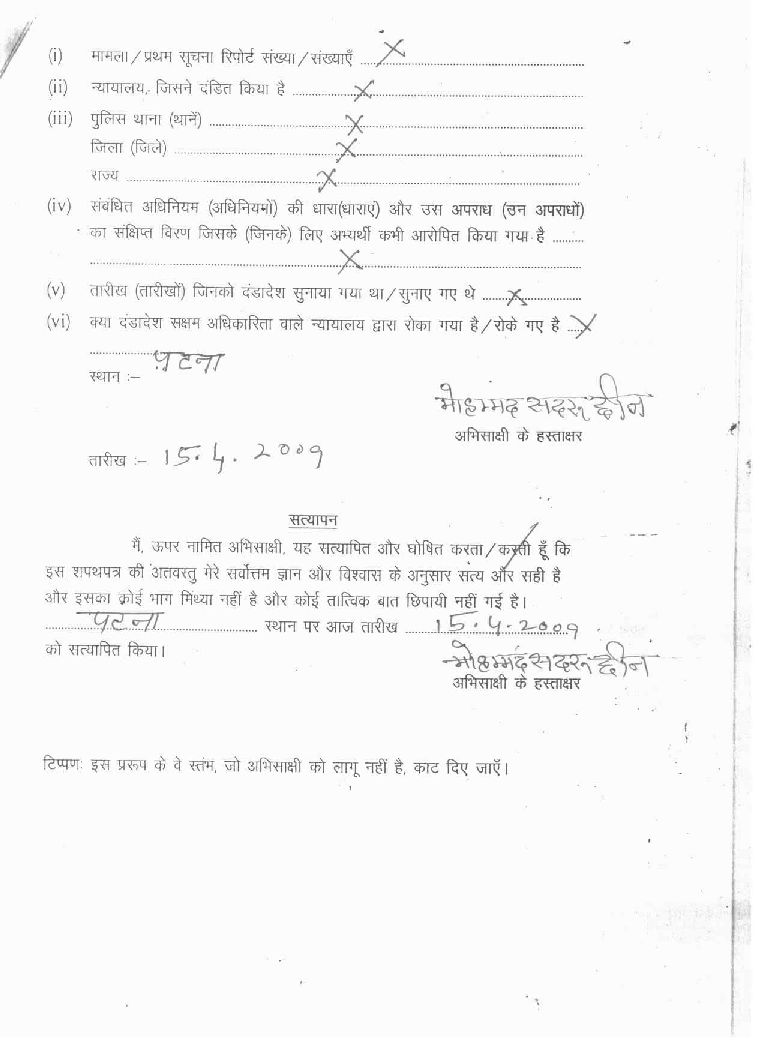 (i) मामला/प्रथम सूचना रिपोर्ट संख्या/संख्याएँ ....X....
(ii) न्यायालय, जिसने दंडित किया है ....X....
(iii) पुलिस थाना (थानें) ....X....
जिला (जिले) ....X....
राज्य ....X....
(iv) संबंधित अधिनियम (अधिनियमों) की धारा(धाराएं) और उस अपराध (उन अपराधों)
का संक्षिप्त विरण जिसके (जिनके) लिए अभ्यर्थी कभी आरोपित किया गया है ....
....X....
(v) तारीख (तारीखों) जिनको दंडादेश सुनाया गया था/सुनाए गए थे ....X....
(vi) क्या दंडादेश सक्षम अधिकारिता वाले न्यायालय द्वारा रोका गया है/रोके गए है ....X
....
स्थान :– पटना
मोहम्मद सदरूद्दीन
अभिसाक्षी के हस्ताक्षर
तारीख :– 15.4.2009
सत्यापन
मैं, ऊपर नामित अभिसाक्षी, यह सत्यापित और घोषित करता/करती हूँ कि
इस शपथपत्र की अंतवस्तु मेरे सर्वोत्तम ज्ञान और विश्वास के अनुसार सत्य और सही है
और इसका कोई भाग मिथ्या नहीं है और कोई तात्विक बात छिपायी नहीं गई है।
....पटना.... स्थान पर आज तारीख ....15.4.2009
को सत्यापित किया।
मोहम्मद सदरूद्दीन
अभिसाक्षी के हस्ताक्षर
टिप्पणः इस प्ररूप के वे स्तंभ, जो अभिसाक्षी को लागू नहीं है, काट दिए जाएँ।